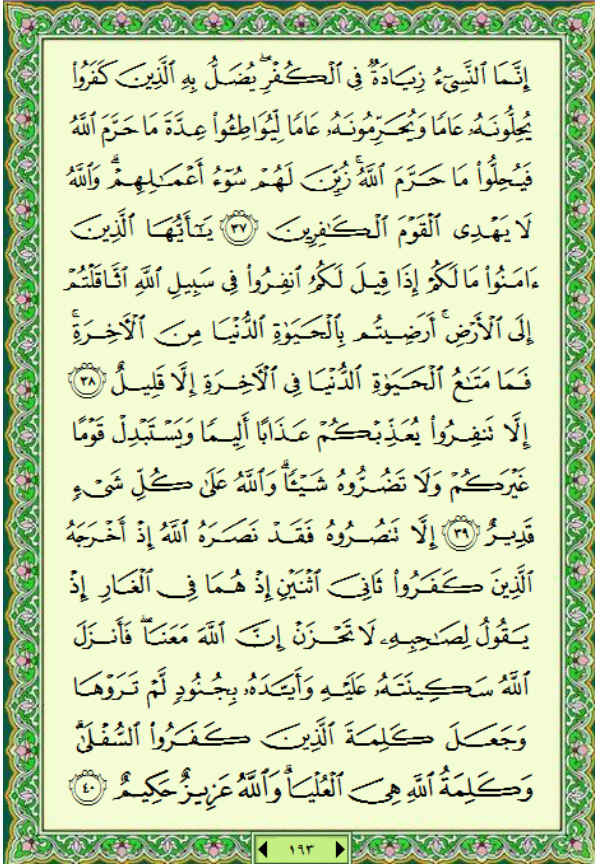 إِنَّمَا ٱلنَّسِىٓءُ زِيَادَةٌ فِى ٱلْكُفْرِ ۖ يُضَلُّ بِهِ ٱلَّذِينَ كَفَرُوا۟
يُحِلُّونَهُۥ عَامًا وَيُحَرِّمُونَهُۥ عَامًا لِّيُوَاطِـُٔوا۟ عِدَّةَ مَا حَرَّمَ ٱللَّهُ
فَيُحِلُّوا۟ مَا حَرَّمَ ٱللَّهُ ۚ زُيِّنَ لَهُمْ سُوٓءُ أَعْمَـٰلِهِمْ ۗ وَٱللَّهُ
لَا يَهْدِى ٱلْقَوْمَ ٱلْكَـٰفِرِينَ ٣٧ يَـٰٓأَيُّهَا ٱلَّذِينَ
ءَامَنُوا۟ مَا لَكُمْ إِذَا قِيلَ لَكُمُ ٱنفِرُوا۟ فِى سَبِيلِ ٱللَّهِ ٱثَّاقَلْتُمْ
إِلَى ٱلْأَرْضِ ۚ أَرَضِيتُم بِٱلْحَيَوٰةِ ٱلدُّنْيَا مِنَ ٱلْـَٔاخِرَةِ ۚ
فَمَا مَتَـٰعُ ٱلْحَيَوٰةِ ٱلدُّنْيَا فِى ٱلْـَٔاخِرَةِ إِلَّا قَلِيلٌ ٣٨
إِلَّا تَنفِرُوا۟ يُعَذِّبْكُمْ عَذَابًا أَلِيمًا وَيَسْتَبْدِلْ قَوْمًا
غَيْرَكُمْ وَلَا تَضُرُّوهُ شَيْـًٔا ۗ وَٱللَّهُ عَلَىٰ كُلِّ شَىْءٍ
قَدِيرٌ ٣٩ إِلَّا تَنصُرُوهُ فَقَدْ نَصَرَهُ ٱللَّهُ إِذْ أَخْرَجَهُ
ٱلَّذِينَ كَفَرُوا۟ ثَانِىَ ٱثْنَيْنِ إِذْ هُمَا فِى ٱلْغَارِ إِذْ
يَقُولُ لِصَـٰحِبِهِۦ لَا تَحْزَنْ إِنَّ ٱللَّهَ مَعَنَا ۖ فَأَنزَلَ
ٱللَّهُ سَكِينَتَهُۥ عَلَيْهِ وَأَيَّدَهُۥ بِجُنُودٍ لَّمْ تَرَوْهَا
وَجَعَلَ كَلِمَةَ ٱلَّذِينَ كَفَرُوا۟ ٱلسُّفْلَىٰ ۗ
وَكَلِمَةُ ٱللَّهِ هِىَ ٱلْعُلْيَا ۗ وَٱللَّهُ عَزِيزٌ حَكِيمٌ ٤٠
١٩٣